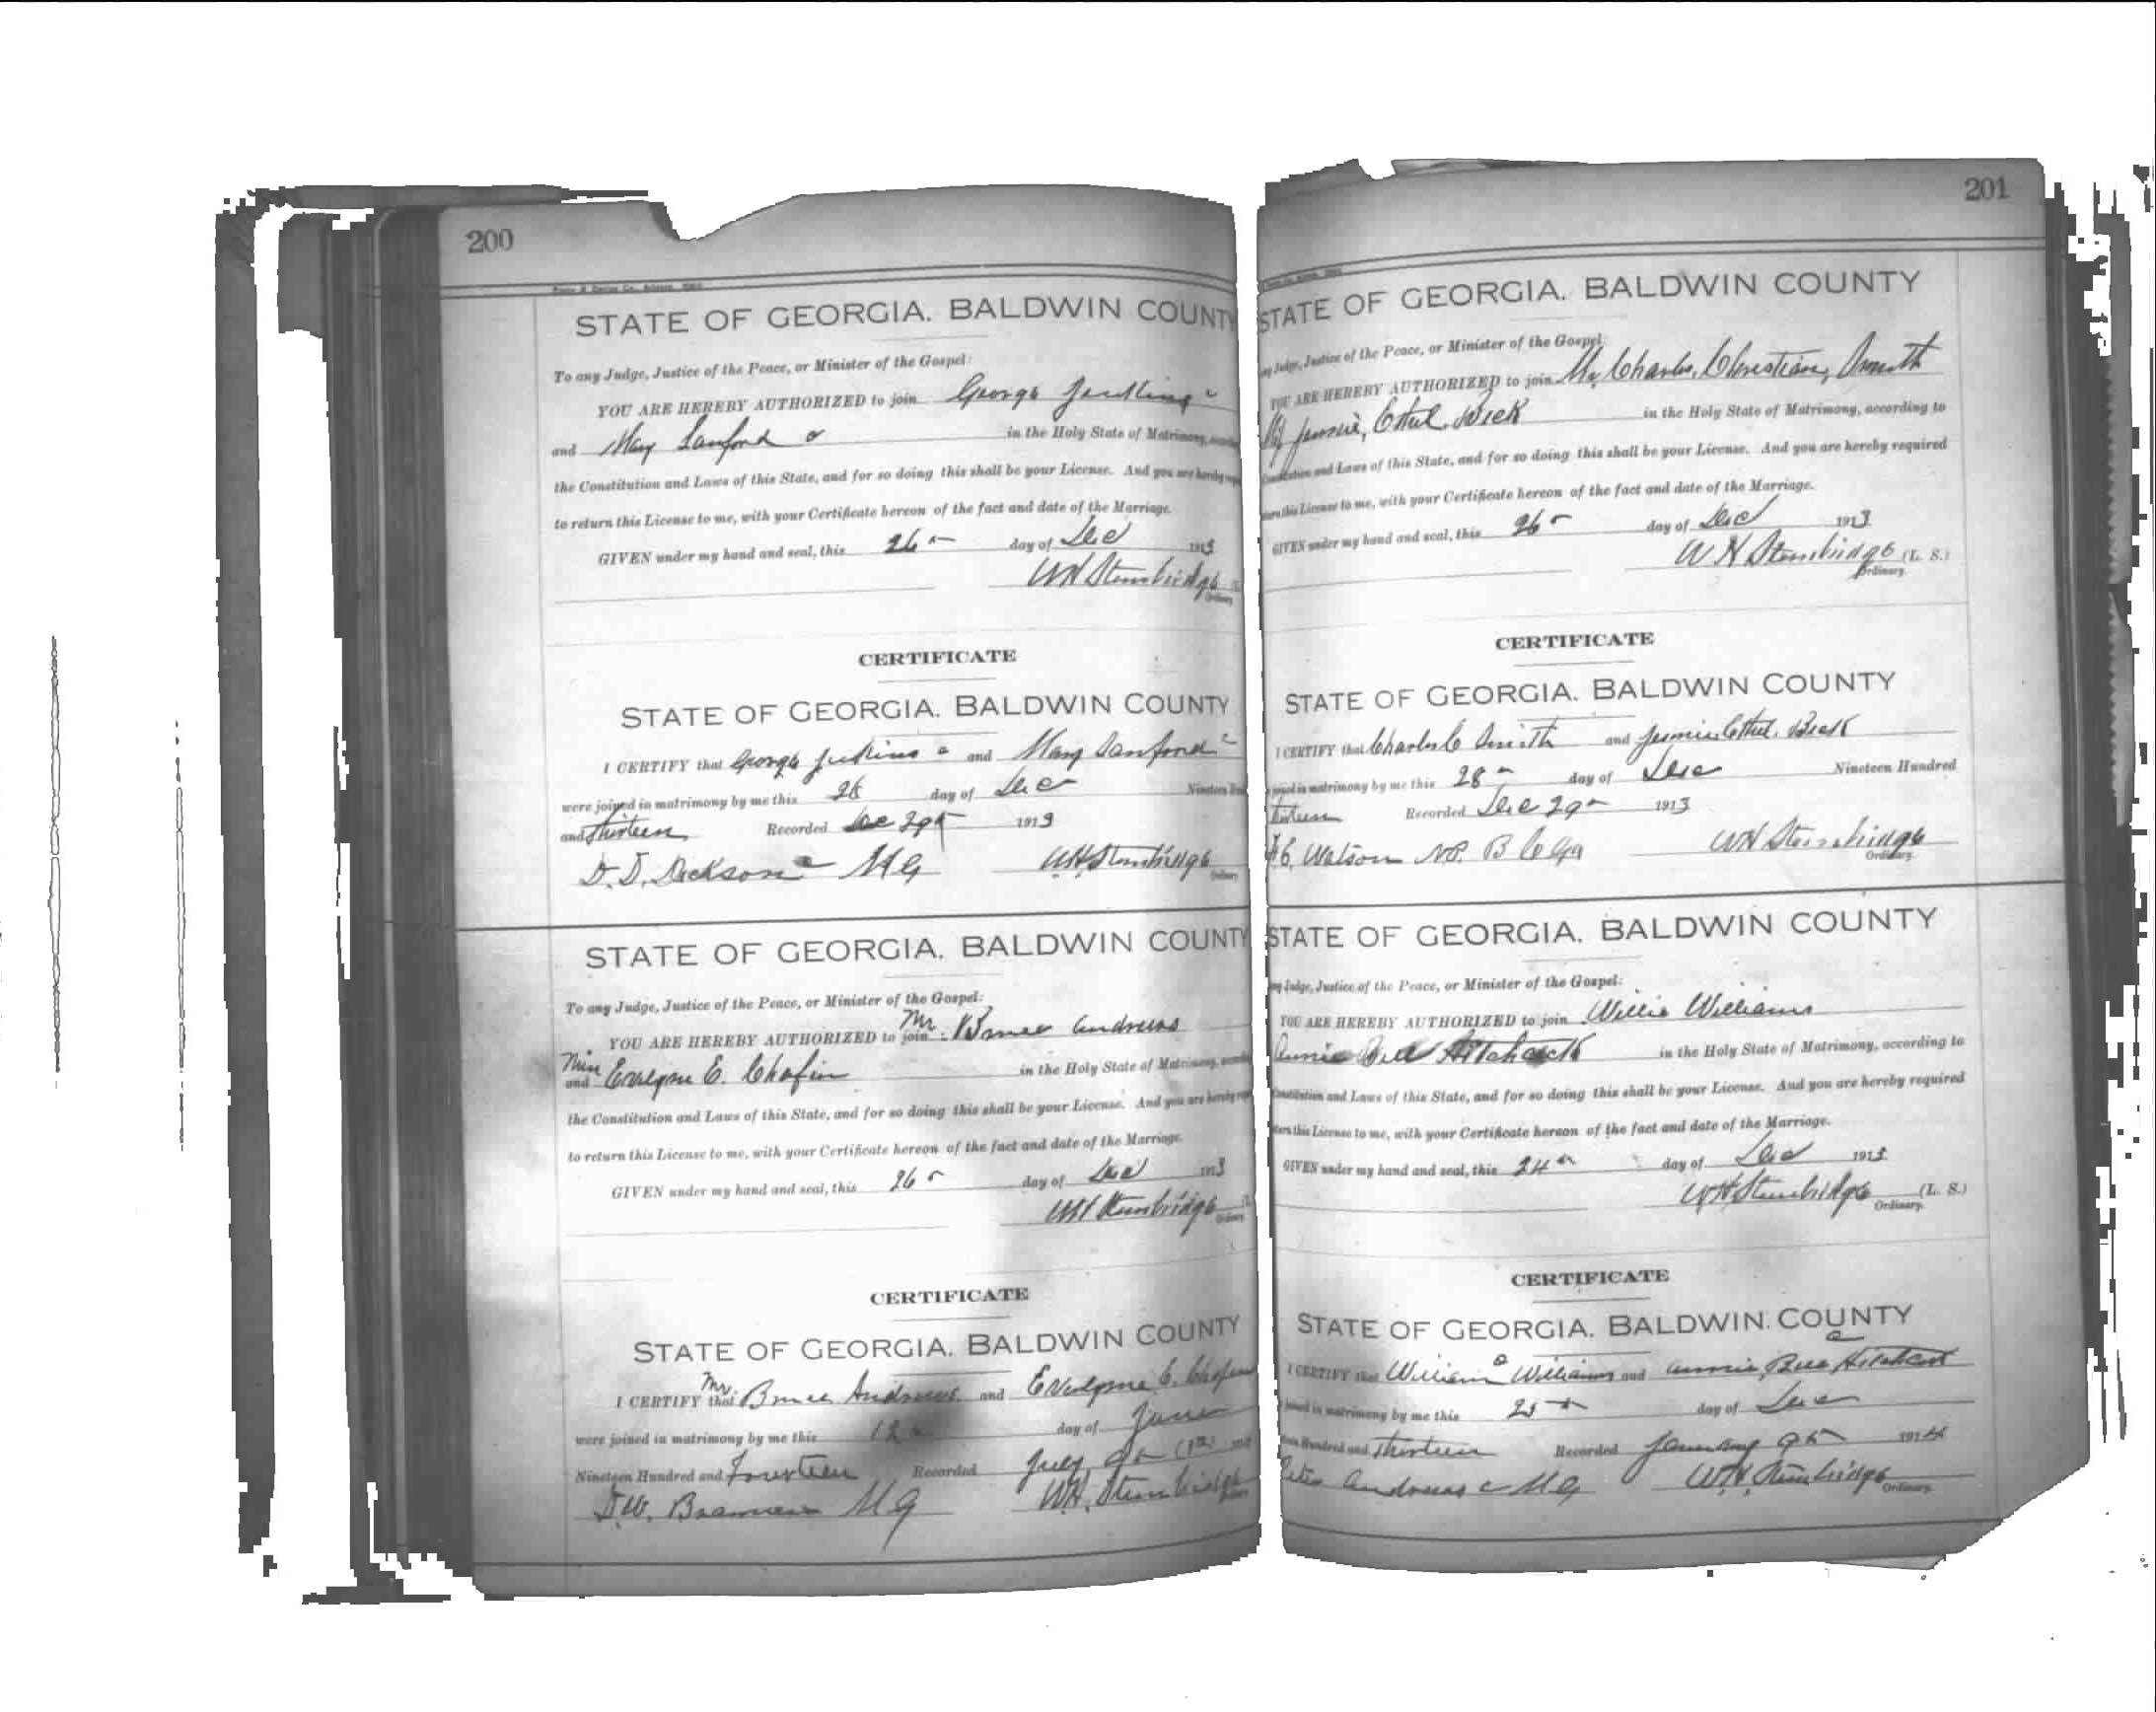 200
STATE OF GEORGIA. BALDWIN COUNTY
To any Judge, Justice of the Peace, or Minister of the Gospel:
YOU ARE HEREBY AUTHORIZED to join George
and Mary Sanford c in the Holy State of Matrimony,
the Constitution and Laws of this State, and for so doing this shall be your License. And you are hereby
to return this License to me, with your Certificate hereon of the fact and date of the Marriage.
GIVEN under my hand and seal, this 26 day of Dec 1913
WH Stembridge
Ordinary
CERTIFICATE
STATE OF GEORGIA. BALDWIN COUNTY
I CERTIFY that George Jenkins c and Mary Sanford c
were joined in matrimony by me this 28 day of Dec Nineteen
and Thirteen Recorded Dec 29th 1913
D. D. Dickson c MG W.H. Stembridge
Ordinary
STATE OF GEORGIA. BALDWIN COUNTY
To any Judge, Justice of the Peace, or Minister of the Gospel:
YOU ARE HEREBY AUTHORIZED to join Mr. Bruce Andrews
and Miss Evelyne E. Chafin in the Holy State of Matrimony,
the Constitution and Laws of this State, and for so doing this shall be your License. And you are hereby
to return this License to me, with your Certificate hereon of the fact and date of the Marriage.
GIVEN under my hand and seal, this 26 day of Dec 1913
WH Stembridge
Ordinary
CERTIFICATE
STATE OF GEORGIA. BALDWIN COUNTY
I CERTIFY that Mr. Bruce Andrews and Evelyne E. Chafin
were joined in matrimony by me this 12 day of June
Nineteen Hundred and Fourteen Recorded July
D.W. MG W.H. Stembridge
201
STATE OF GEORGIA. BALDWIN COUNTY
Judge, Justice of the Peace, or Minister of the Gospel:
YOU ARE HEREBY AUTHORIZED to join Mr Charles, Christian, Smith
Jennie, Ethel Beck in the Holy State of Matrimony, according to
Constitution and Laws of this State, and for so doing this shall be your License. And you are hereby required
this License to me, with your Certificate hereon of the fact and date of the Marriage.
GIVEN under my hand and seal, this 26 day of Dec 1913
W H Stembridge (L. S.)
Ordinary.
CERTIFICATE
STATE OF GEORGIA. BALDWIN COUNTY
I CERTIFY that Charles C Smith and Jennie Ethel. Beck
joined in matrimony by me this 28 day of Dec Nineteen Hundred
Thirteen Recorded Dec 29 1913
Watson N.P. B C Ga WH Stembridge
Ordinary.
STATE OF GEORGIA. BALDWIN COUNTY
Judge, Justice of the Peace, or Minister of the Gospel:
YOU ARE HEREBY AUTHORIZED to join Willie Williams
Annie Bell Hitchcock in the Holy State of Matrimony, according to
Constitution and Laws of this State, and for so doing this shall be your License. And you are hereby required
this License to me, with your Certificate hereon of the fact and date of the Marriage.
GIVEN under my hand and seal, this 24 day of Dec 1913
WH Stembridge (L. S.)
Ordinary.
CERTIFICATE
STATE OF GEORGIA. BALDWIN COUNTY
I CERTIFY that William Williams and Annie Bell Hitchcock
joined in matrimony by me this 25 day of Dec
Hundred and Thirteen Recorded January 9th 1914
Andrews c MG W.H. Stembridge
Ordinary.